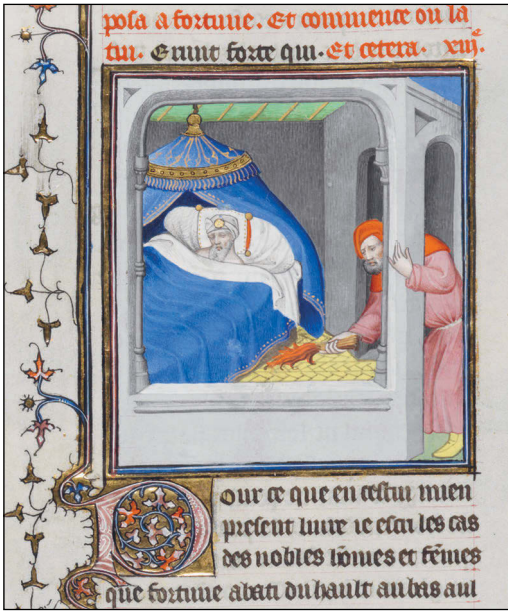 posa a fortune. Et commence ou la
tin. Erunt forte qui. Et cetera. xiiiᵉ.
Pour ce que en cestui mien
present livre ie escri les cas
des nobles hōmes et fēmes
que fortune abati du hault au bas aul